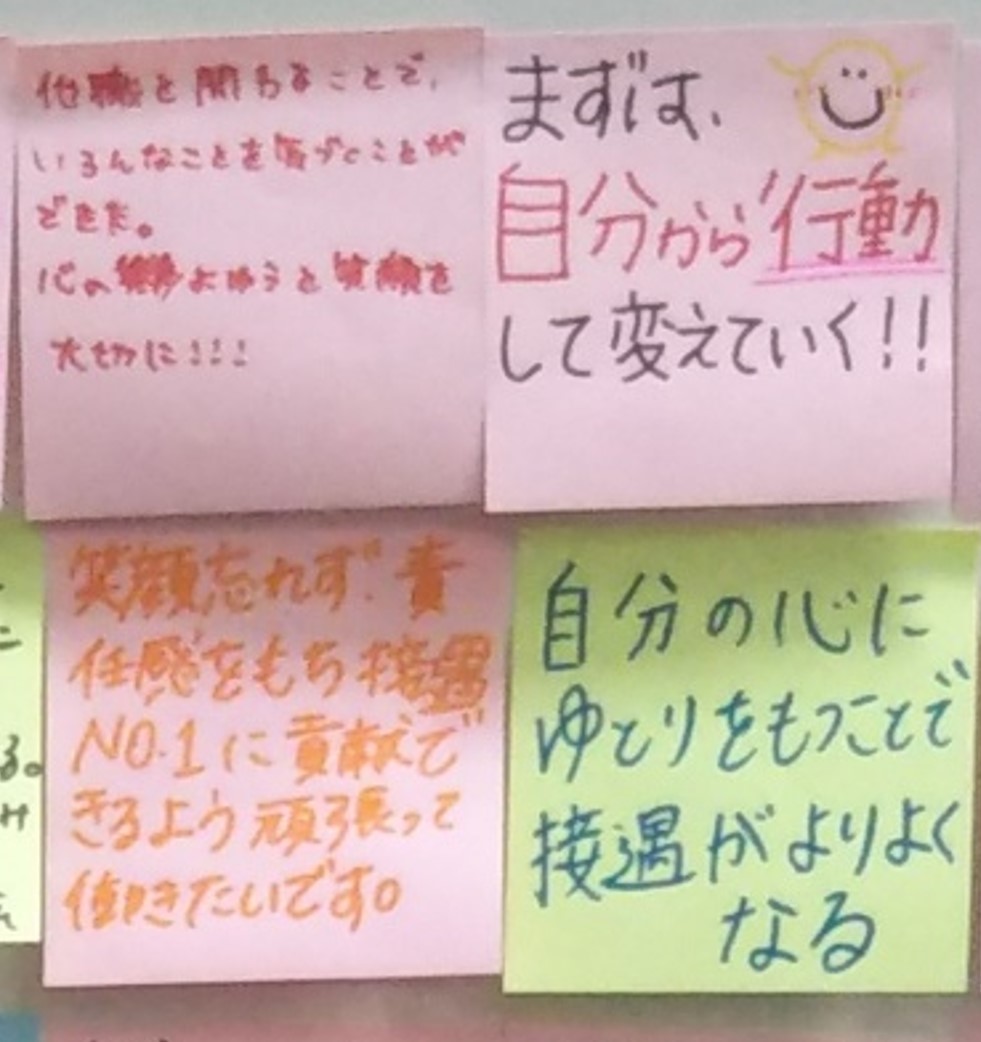 他職と関わることで、
いろんなことを気づくことが
できた。
心の よゆうと笑顔を
大切に!!!
まずは、
自分から行動
して変えていく!!
笑顔忘れず、責
任感をもち接遇
NO.1に貢献で
きるよう頑張って
働きたいです。
自分の心に
ゆとりをもつことで
接遇がよりよく
なる